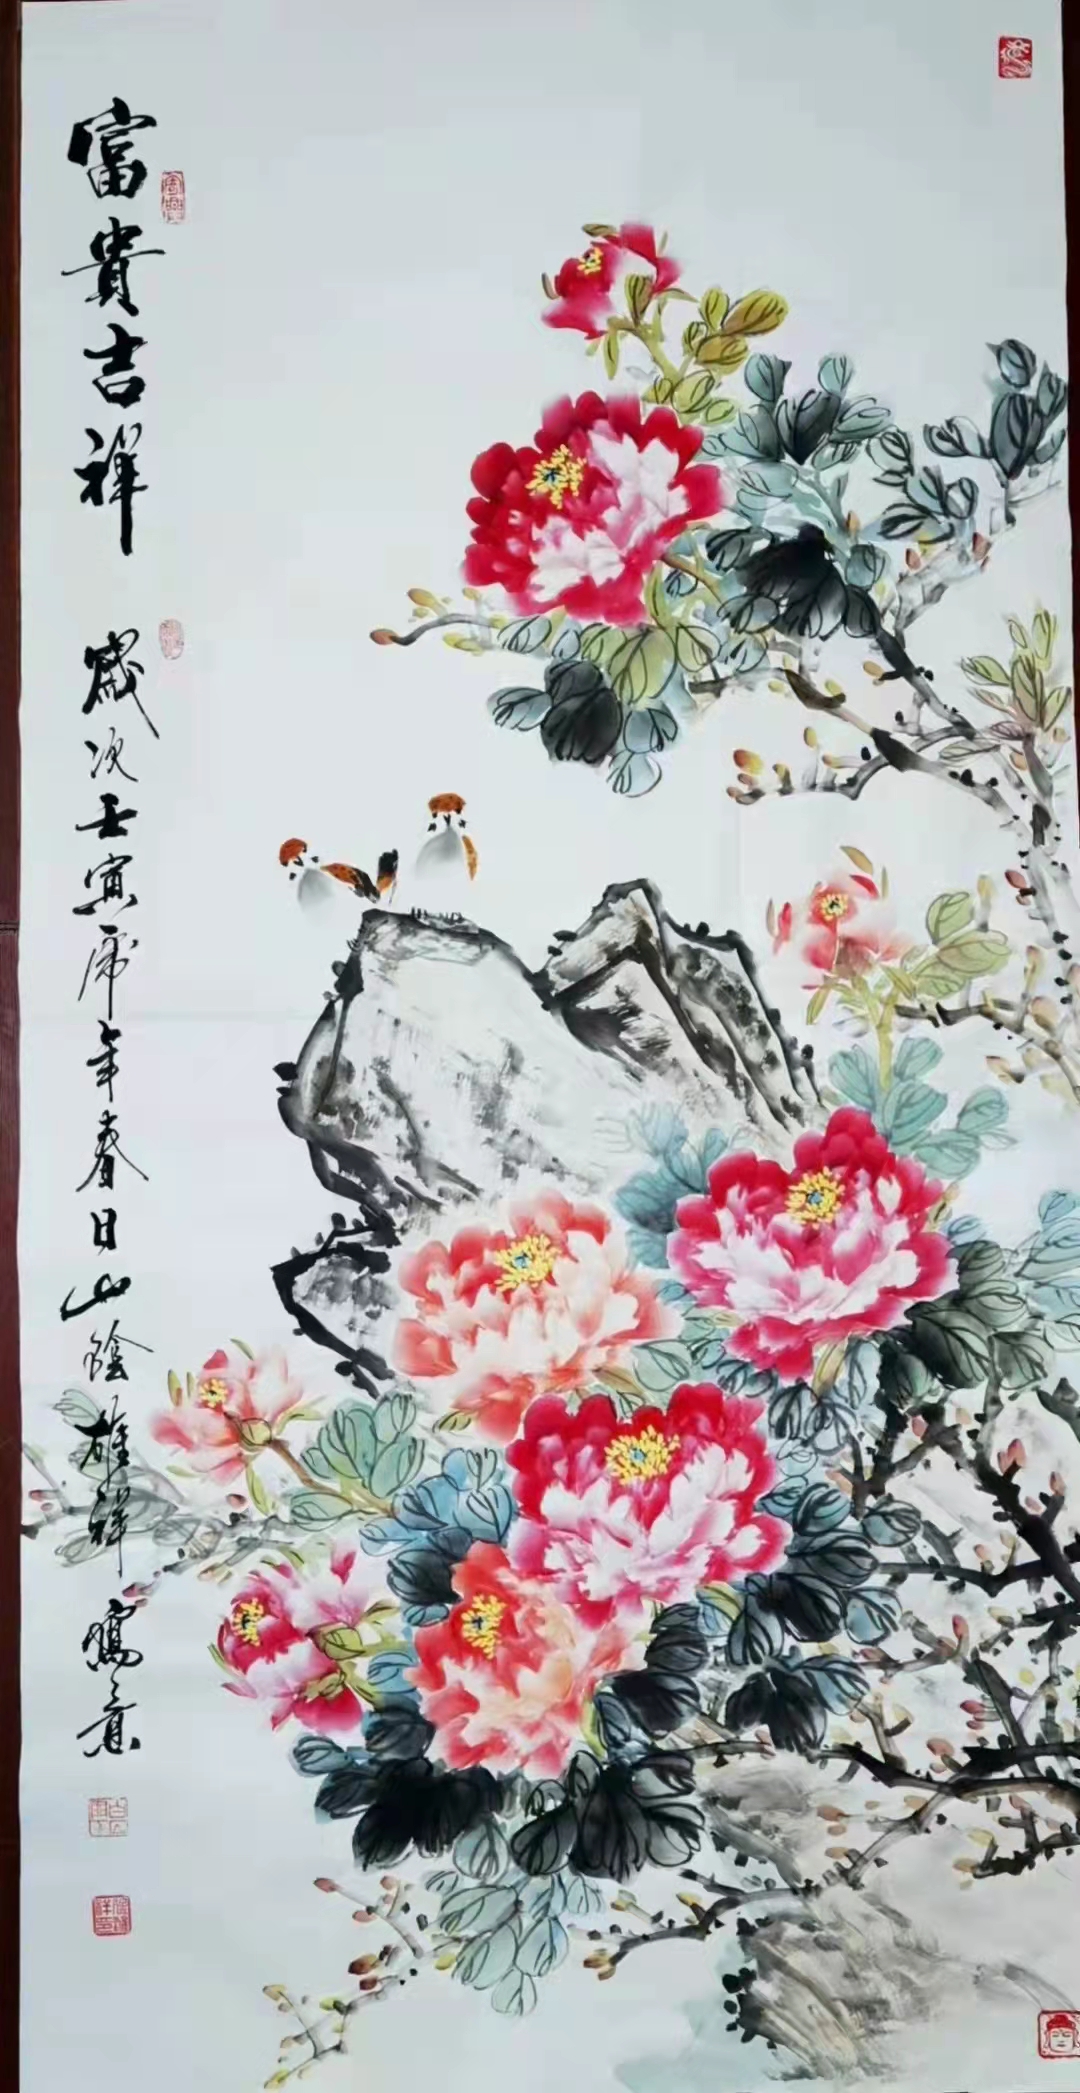 富貴吉祥
歲次壬寅虎年春日山陰雄祥寫意